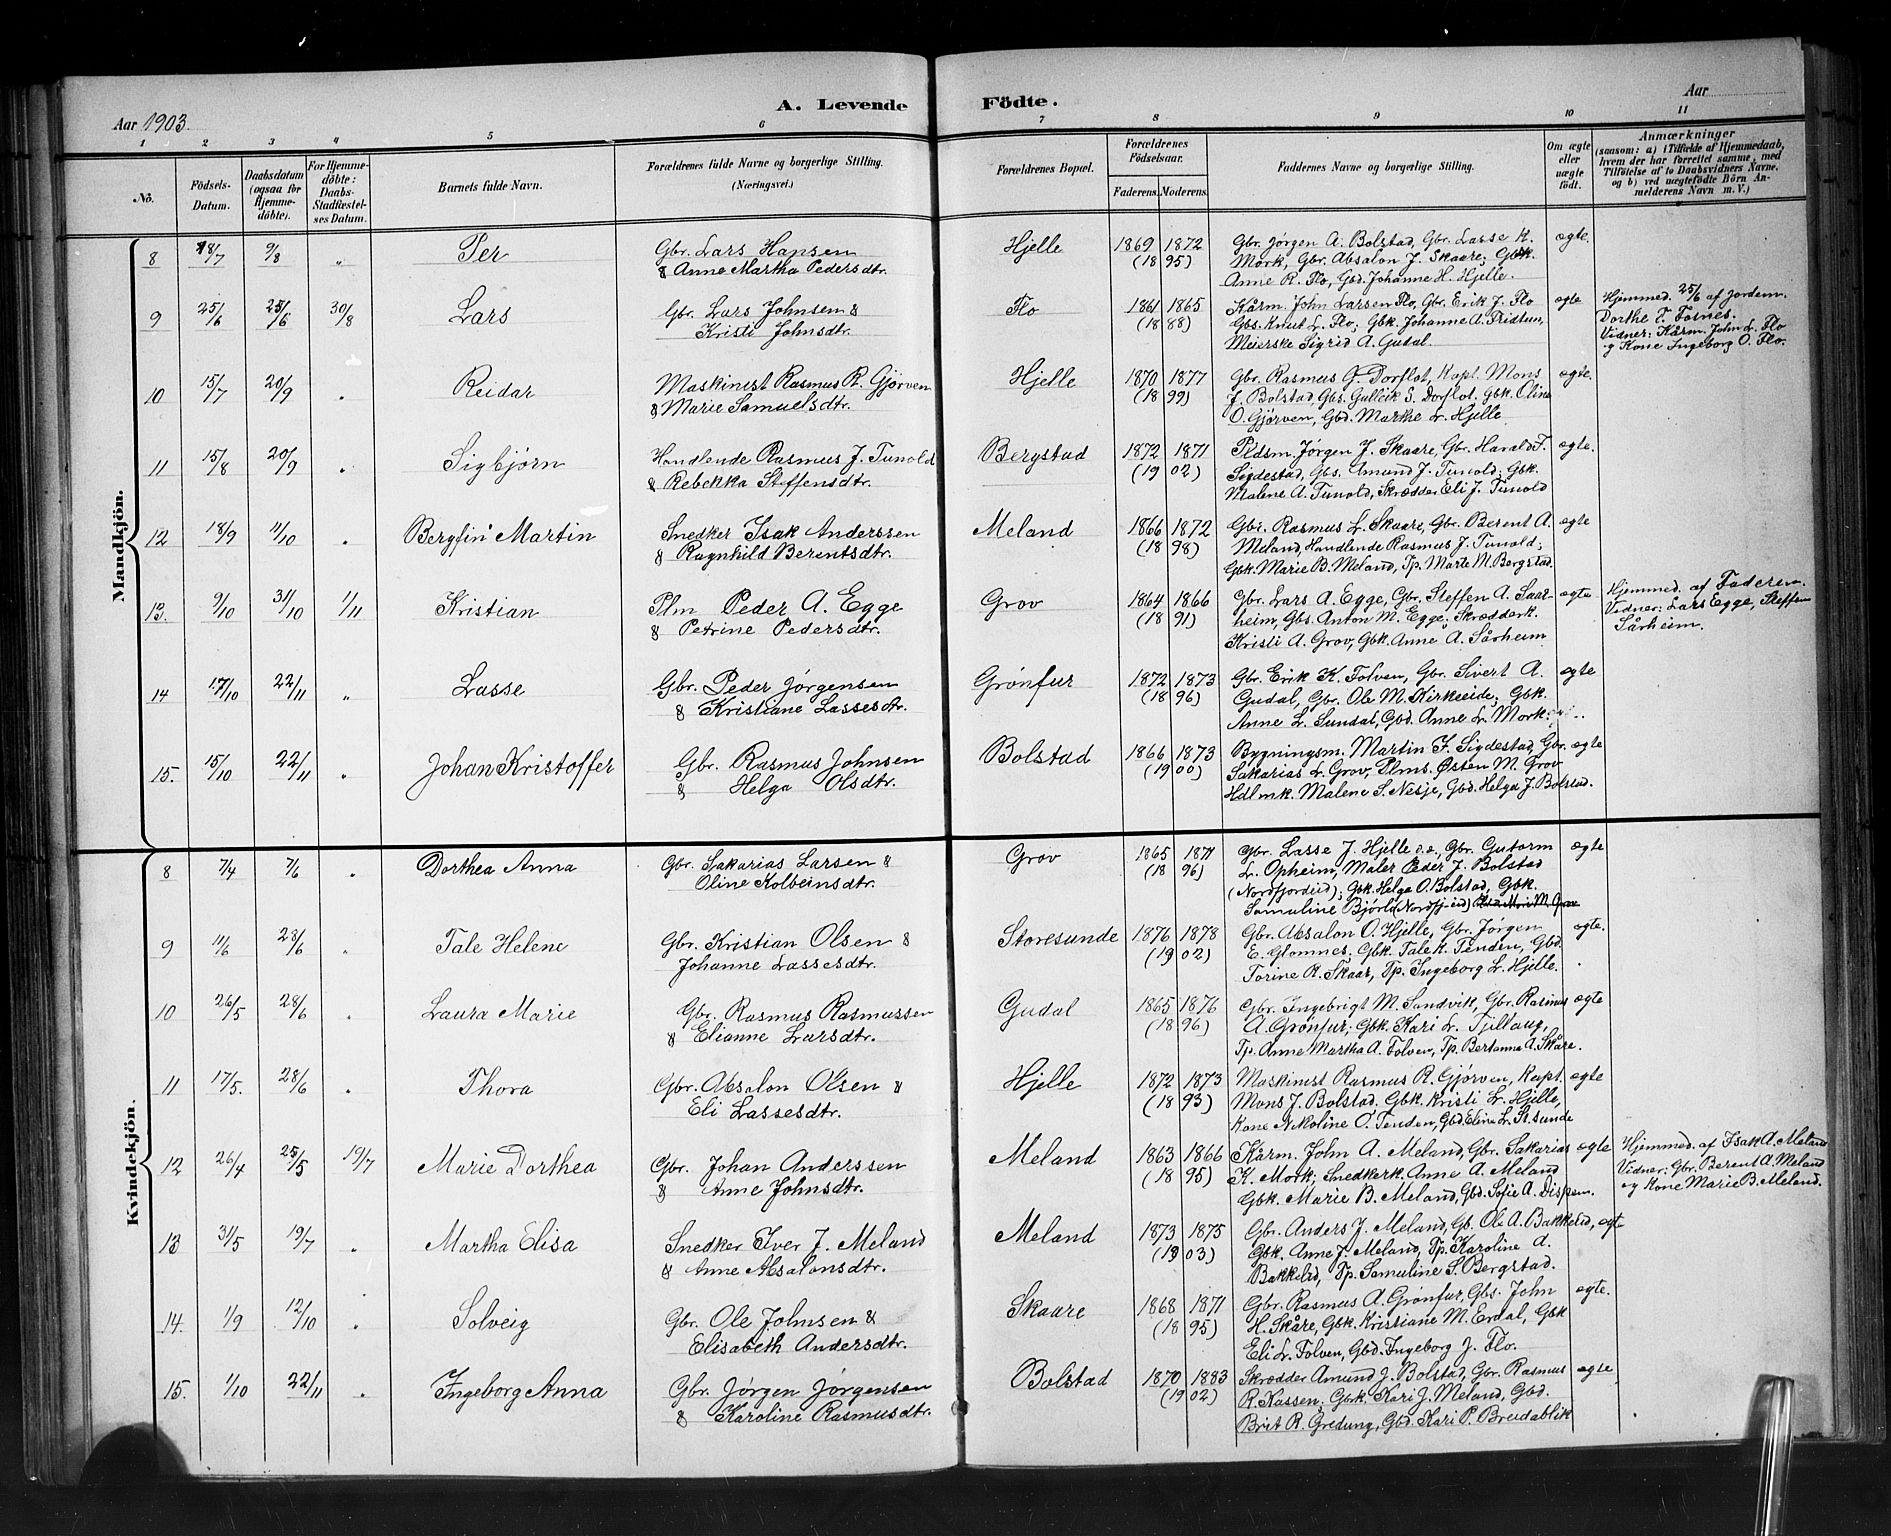 A. Levende Födte.
Aar 1903.
Aar
1 2 3 4 5 6 7 8 9 10 11
No.
Födsels-Datum.
Daabsdatum (ogsaa for Hjemmedöbte).
For Hjemmedöbte: Daabs-Stadfæstelses Datum.
Barnets fulde Navn.
Forældrenes fulde Navne og borgerlige Stilling. (Næringsvei.)
Forældrenes Bopæl.
Forældrenes Födselsaar.
Faderens. Moderens.
Faddernes Navne og borgerlige Stilling.
Om ægte eller uægte födt.
Anmærkninger
(saasom: a) i Tilfælde af Hjemmedaab, hvem der har forrettet samme, med Tilföielse af to Daabsvidners Navne, og b) ved uægtefödte Börn Anmelderens Navn m. V.)
Mandkjön.
8 18/7 9/8 " Per
Gbr. Lars Hansen
& Anne Martha Pedersdtr.
Hjelle 1869 1872
(1895)
Gbr. Jørgen A. Bolstad, Gbr. Lasse K.
Mork, Gbr. Absalon J. Skaare; Gbk.
Anne R. Flo, Gbd. Johanne H. Hjelle.
ægte.
9 25/6 25/6 30/8 Lars
Gbr. Lars Johnsen &
Kristi Johnsdtr.
Flo 1861 1865
(1888)
Kårm. John Larsen Flo, Gbr. Erik J. Flo
Gbs. Knut L. Flo; Gbk. Johanne A. Fridtun,
Meierske Sigrid A. Gudal.
ægte
Hjemmed. 25/6 af Jordem.
Dorthe T. Fosnes.
Vidner: Kårm. John L. Flo
og Kone Ingeborg O. Flo.
10 15/7 20/9 " Reidar
Maskinist Rasmus R. Gjørven
& Marie Samuelsdtr.
Hjelle 1870 1877
(1899)
Gbr. Rasmus G. Dorflot, Kapt. Mons
J. Bolstad, Gbs. Gulleik S. Dorflot. Gbk. Oline
O. Gjørven, Gbd. Marthe L. Hjelle.
ægte.
11 15/8 20/9 " Sigbjørn
Handlende Rasmus J. Tunold
& Rebekka Steffensdtr.
Bergstad 1872 1871
(1902)
Pldsm. Jørgen J. Skaare, Gbr. Harald F.
Sigdestad, Gbs. Amund J. Tunold; Gbk.
Malene A. Tunold, Skrædder Eli J. Tunold
ægte.
12 18/9 11/10 " Bergfin Martin
Snedker Isak Anderssen
& Ragnhild Berentsdtr.
Meland 1866 1872
(1898)
Gbr. Rasmus L. Skaare, Gbr. Berent A.
Meland, Handlende Rasmus J. Tunold;
Gbk. Marie B. Meland, Tp. Marte M. Bergstad.
ægte
13. 9/10 31/10 1/11 Kristian
Plm Peder A. Egge
& Petrine Pedersdtr.
Grov 1864 1866
(1891)
Gbr. Lars A. Egge, Gbr. Steffen A. Saar-
heim, Gbs. Anton M. Egge; Skrædderk.
Kristi A. Grov, Gbk. Anne A. Sårheim
ægte
Hjemmed. af Faderen.
Vidner: Lars Egge, Steffen
Sårheim.
14 17/10 22/11 " Lasse
Gbr. Peder Jørgensen
& Kristiane Lassesdtr.
Grönfur 1872 1873
(1896)
Gbr. Erik K. Folven, Gbr. Sivert A.
Gudal, Gbr. Ole M. Kirkeeide; Gbk.
Anne L. Sundal, Gbd. Anne L. Mork.
ægte
15. 15/10 22/11 " Johan Kristoffer
Gbr. Rasmus Johnsen
& Helga Olsdtr.
Bolstad 1866 1873
(1900)
Bygningsm. Martin F. Sigdestad, Gbr.
Sakarias L. Grov, Plms. Østen M. Grov
Hdlmk. Malene S. Nesje, Gbd. Helga J. Bolstad.
ægte
Kvindekjön.
8 7/4 7/6 " Dorthea Anna
Gbr. Sakarias Larsen &
Oline Kolbeinsdtr.
Grov 1865 1871
(1896)
Gbr. Lasse J. Hjelle o.e., Gbr. Gutorm
L. Opheim, Maler Peder J. Bolstad
(Nordfjordeid); Gbk. Helga O. Bolstad, Gbk.
Samuline Bjørlo (Nordfj-eid)
ægte
9 11/6 28/6 " Tale Helene
Gbr. Kristian Olsen &
Johanne Lassesdtr.
Storesunde 1876 1878
(1902)
Gbr. Absalon O. Hjelle, Gbr. Jørgen
E. Glomnes. Gbk. Tale K. Tenden, Gbd.
Torine R. Skaar, Tp. Ingeborg L. Hjelle.
ægte.
10 26/5 28/6 " Laura Marie
Gbr. Rasmus Rasmussen
& Elianne Larsdtr.
Gudal 1865 1876
(1896)
Gbr. Ingebrigt M. Sandvik, Gbr. Rasmus
A. Grønfur; Gbk. Kari L. Tjellaug,
Tp. Anne Martha A. Folven, Tp. Bertanna A. Skåre.
ægte
11 17/5. 28/6 " Thora
Gbr. Absalon Olsen &
Eli Lassesdtr.
Hjelle 1872 1873
(1893)
Maskinist Rasmus R. Gjørven, Kapt.
Mons J. Bolstad. Gbk. Kristi L. Hjelle,
Kone Nikoline O. Tenden, Gbd. Eline L. St.sunde
ægte
12 26/4 25/5 19/7 Marie Dorthea
Gbr. Johan Anderssen
& Anne Johnsdtr.
Meland 1863 1866
(1895)
Kårm. John A. Meland, Gbr. Sakarias
K. Mork; Snedkerk. Anne A. Meland
Gbk. Marie B. Meland, Gbd. Sofie A. Dispen.
ægte
Hjemmed. af Isak A. Meland
Vidner: Gbr. Berent A. Meland
og Kone Marie B. Meland.
13 31/5 19/7 " Martha Elisa
Snedker Iver J. Meland
& Anne Absalonsdtr.
Meland 1873 1875
(1903)
Gbr. Anders J. Meland, Gb. Ole A. Bakkelid,
Gbk. Anne J. Meland, Tp. Karoline A.
Bakkelid, Tp. Samuline S. Bergstad.
ægte
14. 1/9 12/10 " Solveig
Gbr. Ole Johnsen &
Elisabeth Andersdtr.
Skaare 1868 1871
(1895)
Gbr. Rasmus A. Grønfur, Gbs. John
H. Skåre, Gbk. Kristiane M. Erdal, Gbk
Eli L. Folven, Gbd. Ingeborg J. Flo.
ægte.
15. 1/10 22/11 " Ingeborg Anna
Gbr. Jørgen Jørgensen
& Karoline Rasmusdtr.
Bolstad 1870 1883
(1902)
Skrædder Amund J. Bolstad, Gbr. Rasmus
R. Kassen. Gbk. Kari J. Meland, Gbd.
Brit R. Gredung, Gbd. Kari P. Breidablik
ægte